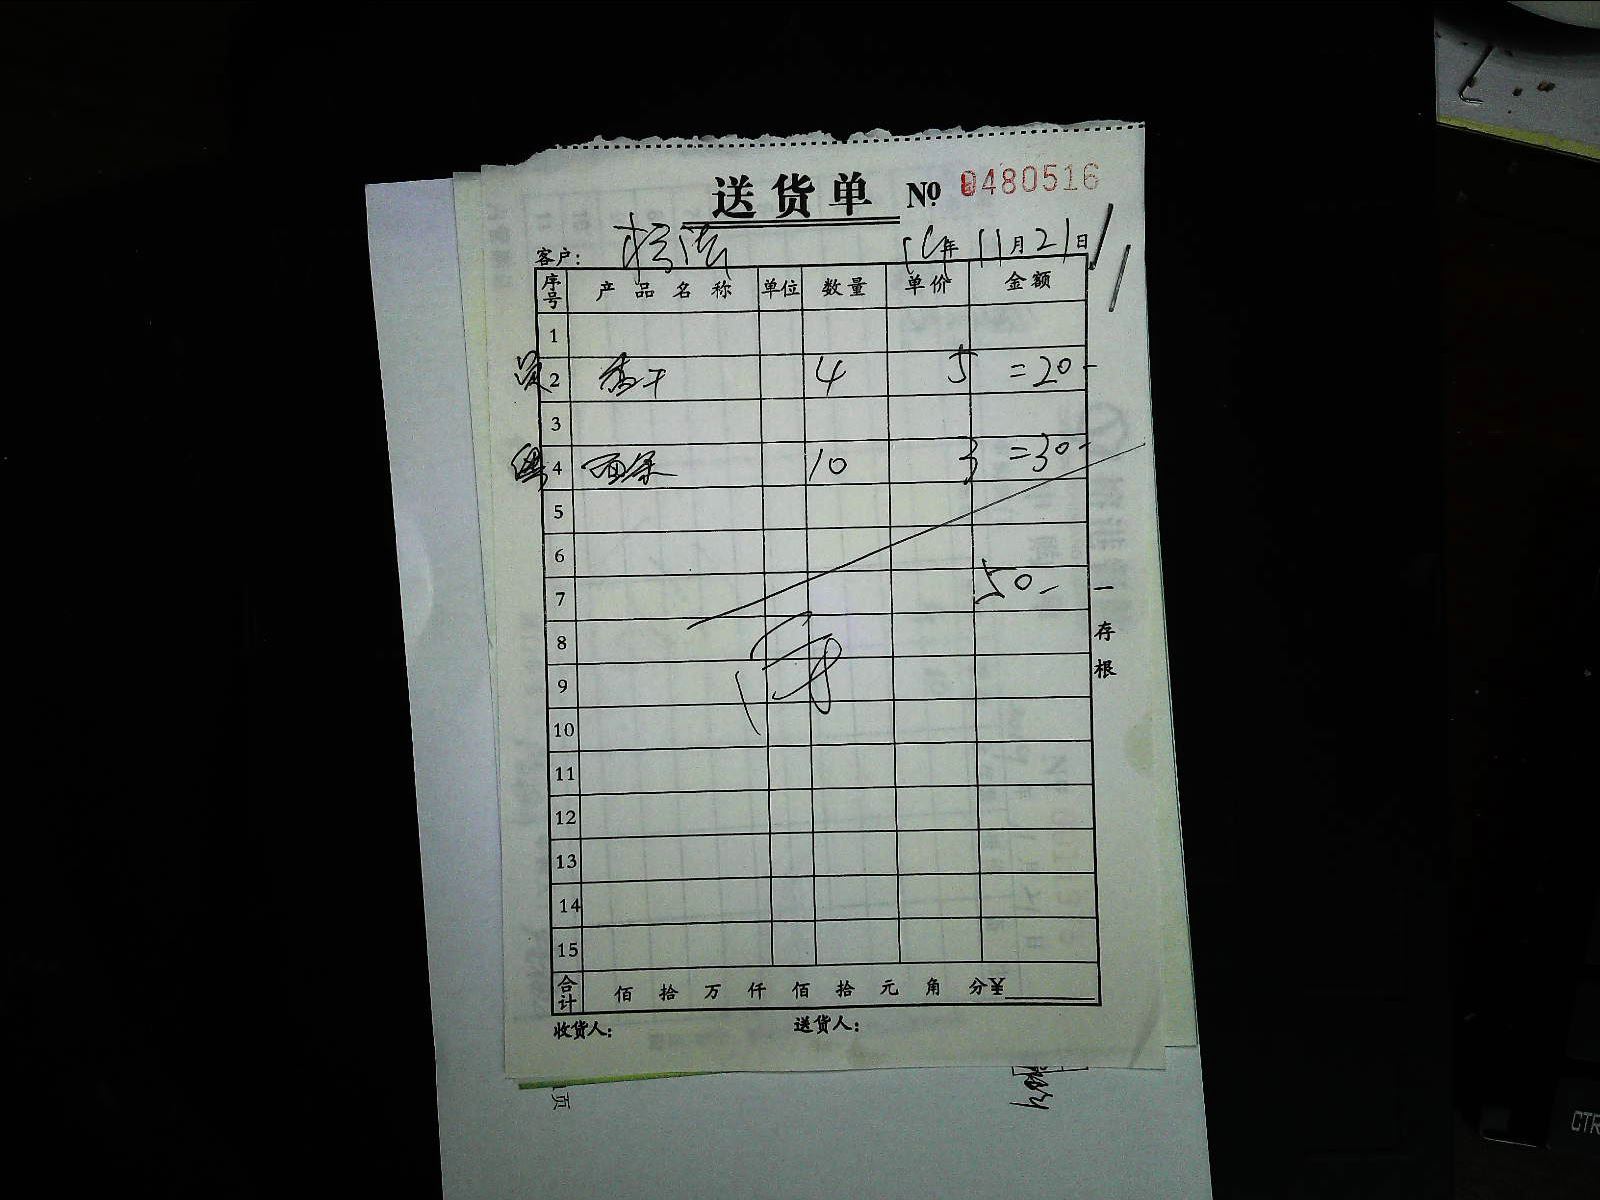 送货单 No 0480516
客户: 年 11月21日
序号 产品名称 单位 数量 单价 金额
1
2 香干 4 5 =20-
3
4 面条 10 3 =30-
5
6
7 50-
8
9
10
11
12
13
14
15
一存根
合计 佰 拾 万 仟 佰 拾 元 角 分¥
收货人: 送货人:
页
CTR